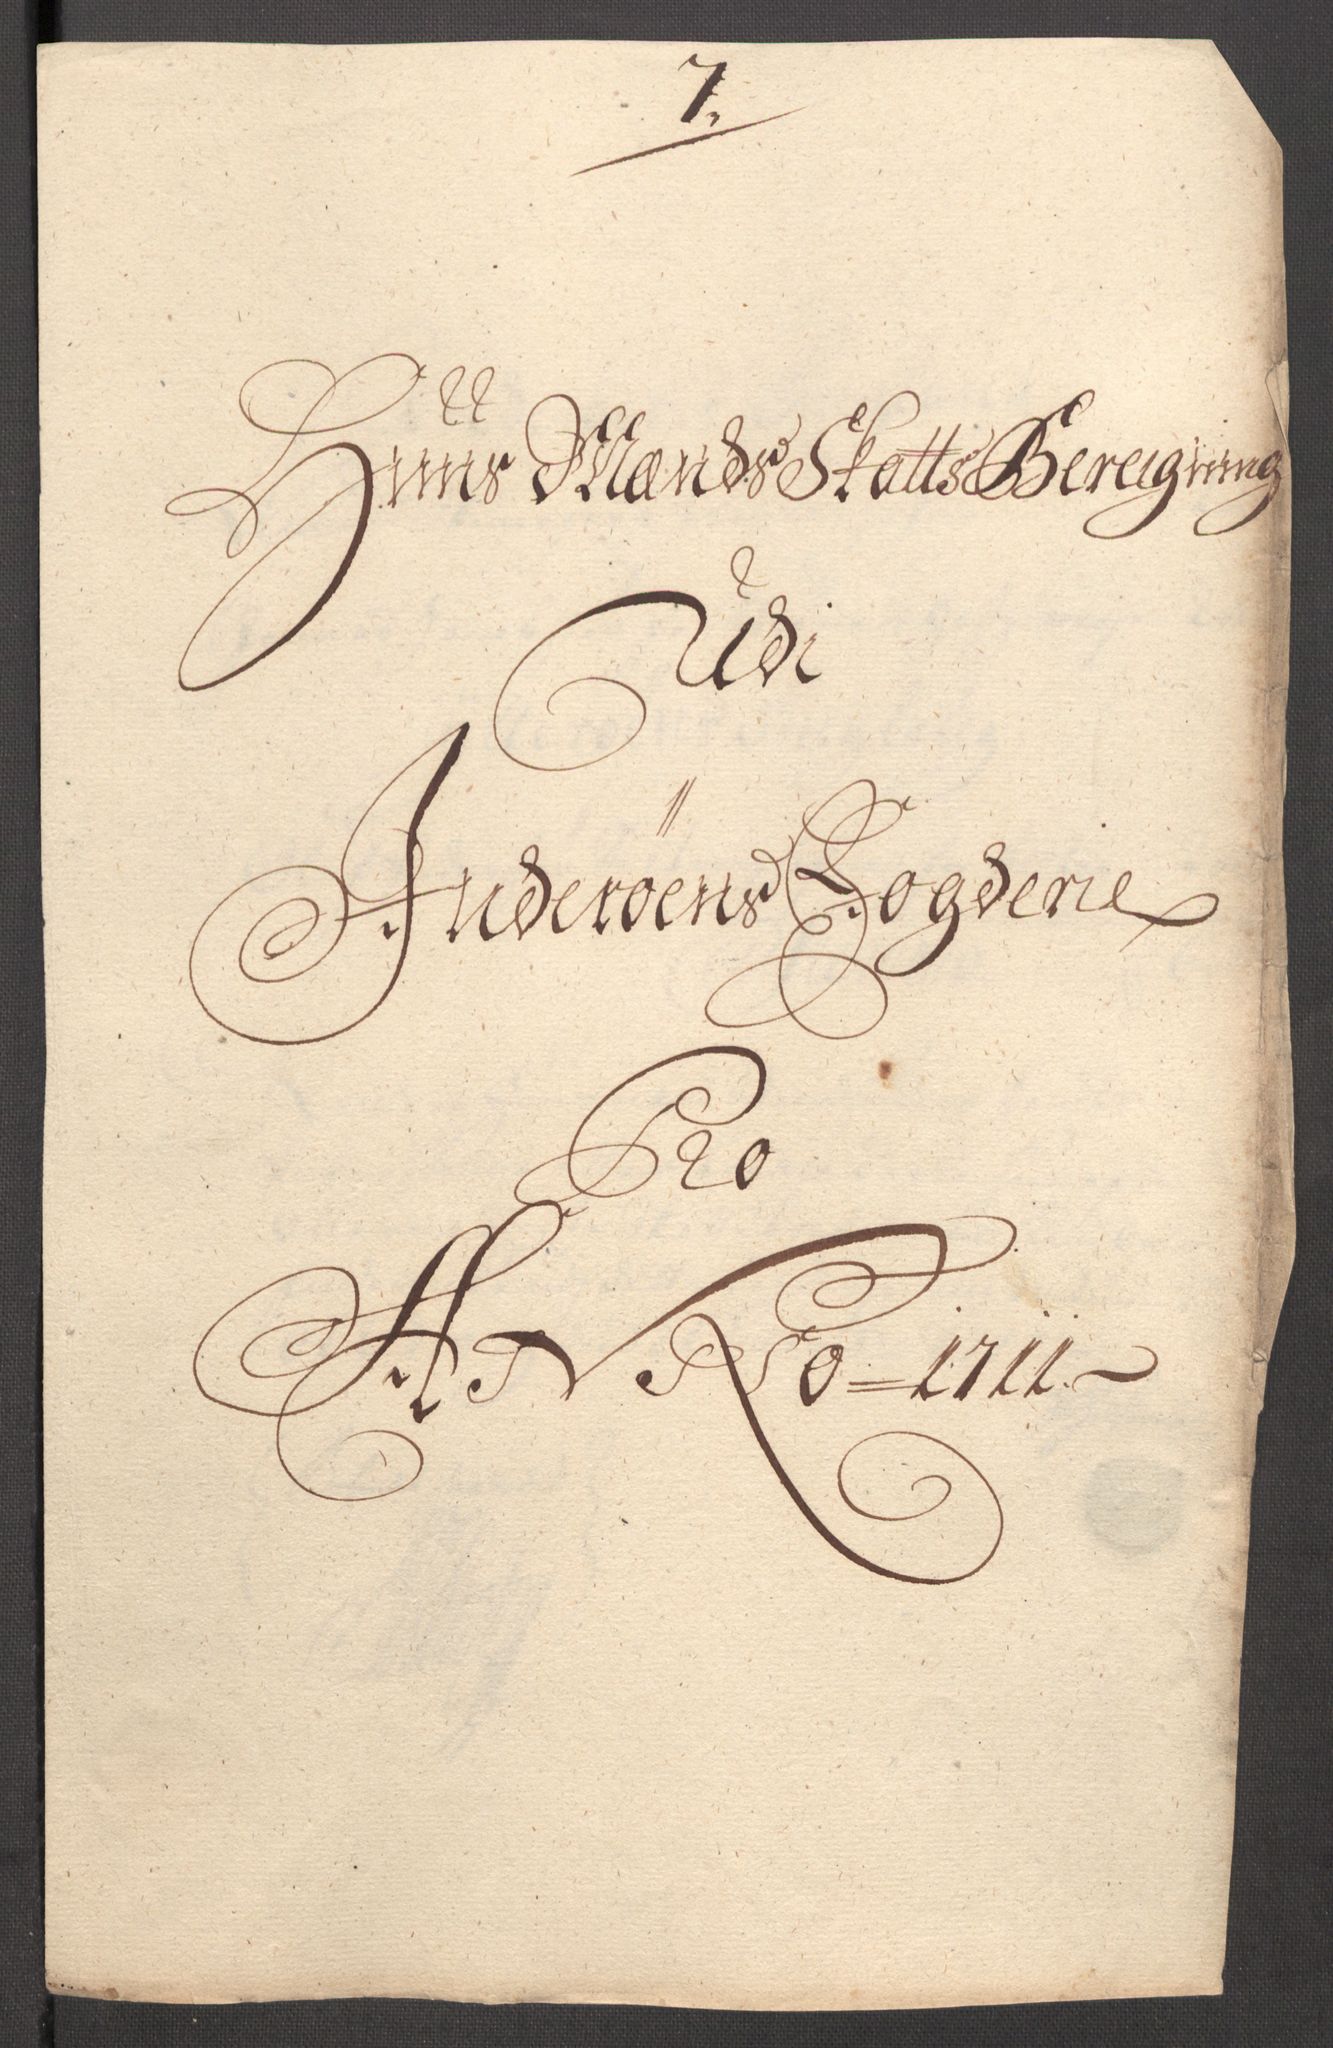 7.
Huus Mænds Skatts Bereigning
Udi
Inderöens Fogderie
Pro
ANNO = 1711.